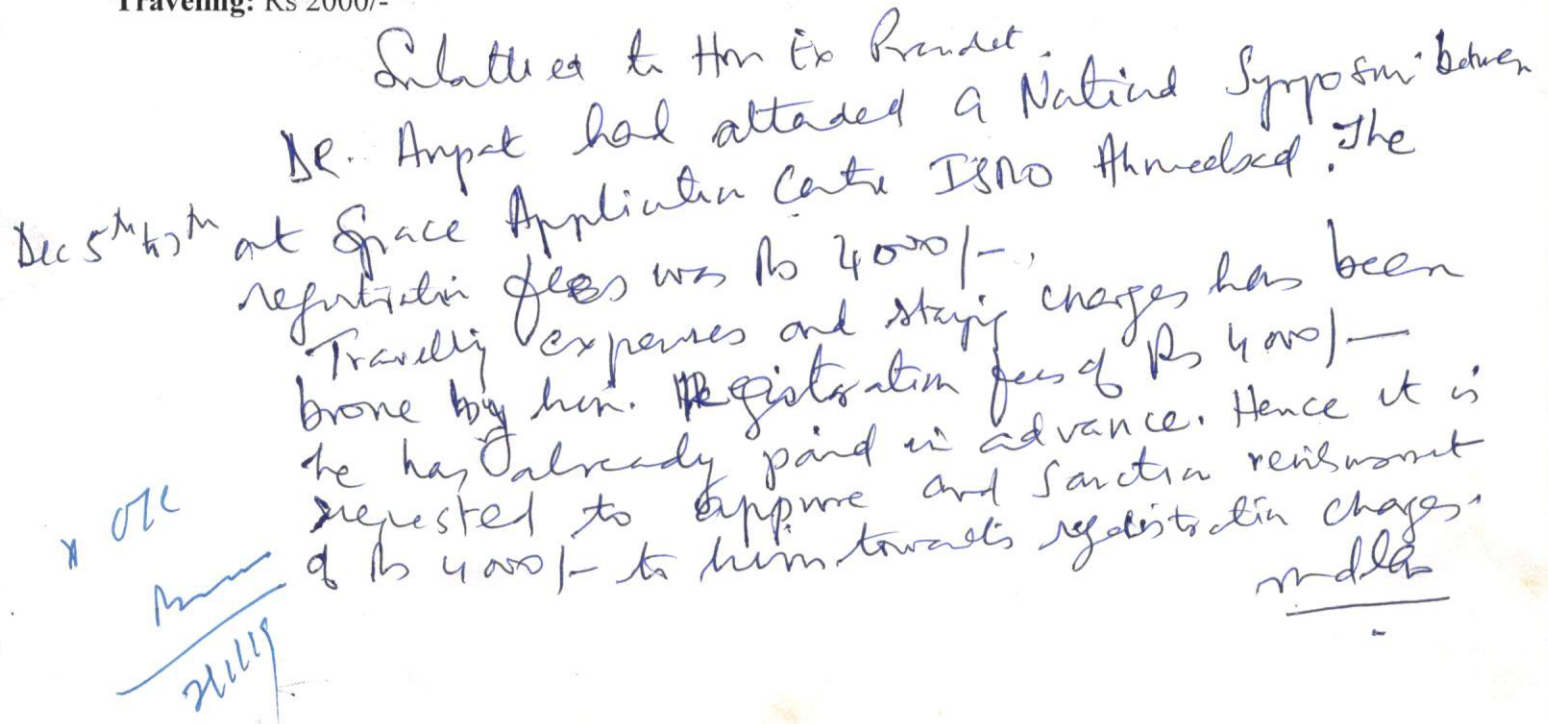 Traveling: Rs 2000/-
Submitted to Hon Ex President.
Dr. Arpat had attaded a National Symposm between
Dec 5th to 7th at Space Application Centre ISRO Ahmedabad. The
registration fees was Rs 4000/-.
Travelling expenses and staying charges has been
brone by him. Registration fees of Rs 4000/-
he has already paid in advance. Hence it is
requested to approve and Sanction reimbursment
of Rs 4000/- to him towards registration charges.
OK